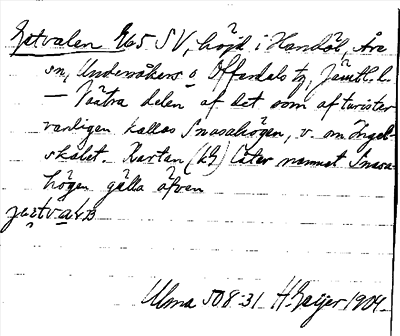 Getvalen 265 SV, höjd i Handöl, Åre
sn, Undersåkers o Offerdals tg, Jämtl. l.
— Västra delen af det som af turister
vanligen kallas Snasahögen, v. om Ingel-
skalet. Kartan (kG) låter namnet Snasa-
högen gälla äfven
Ulma 508:31 H. Geijer 1904.